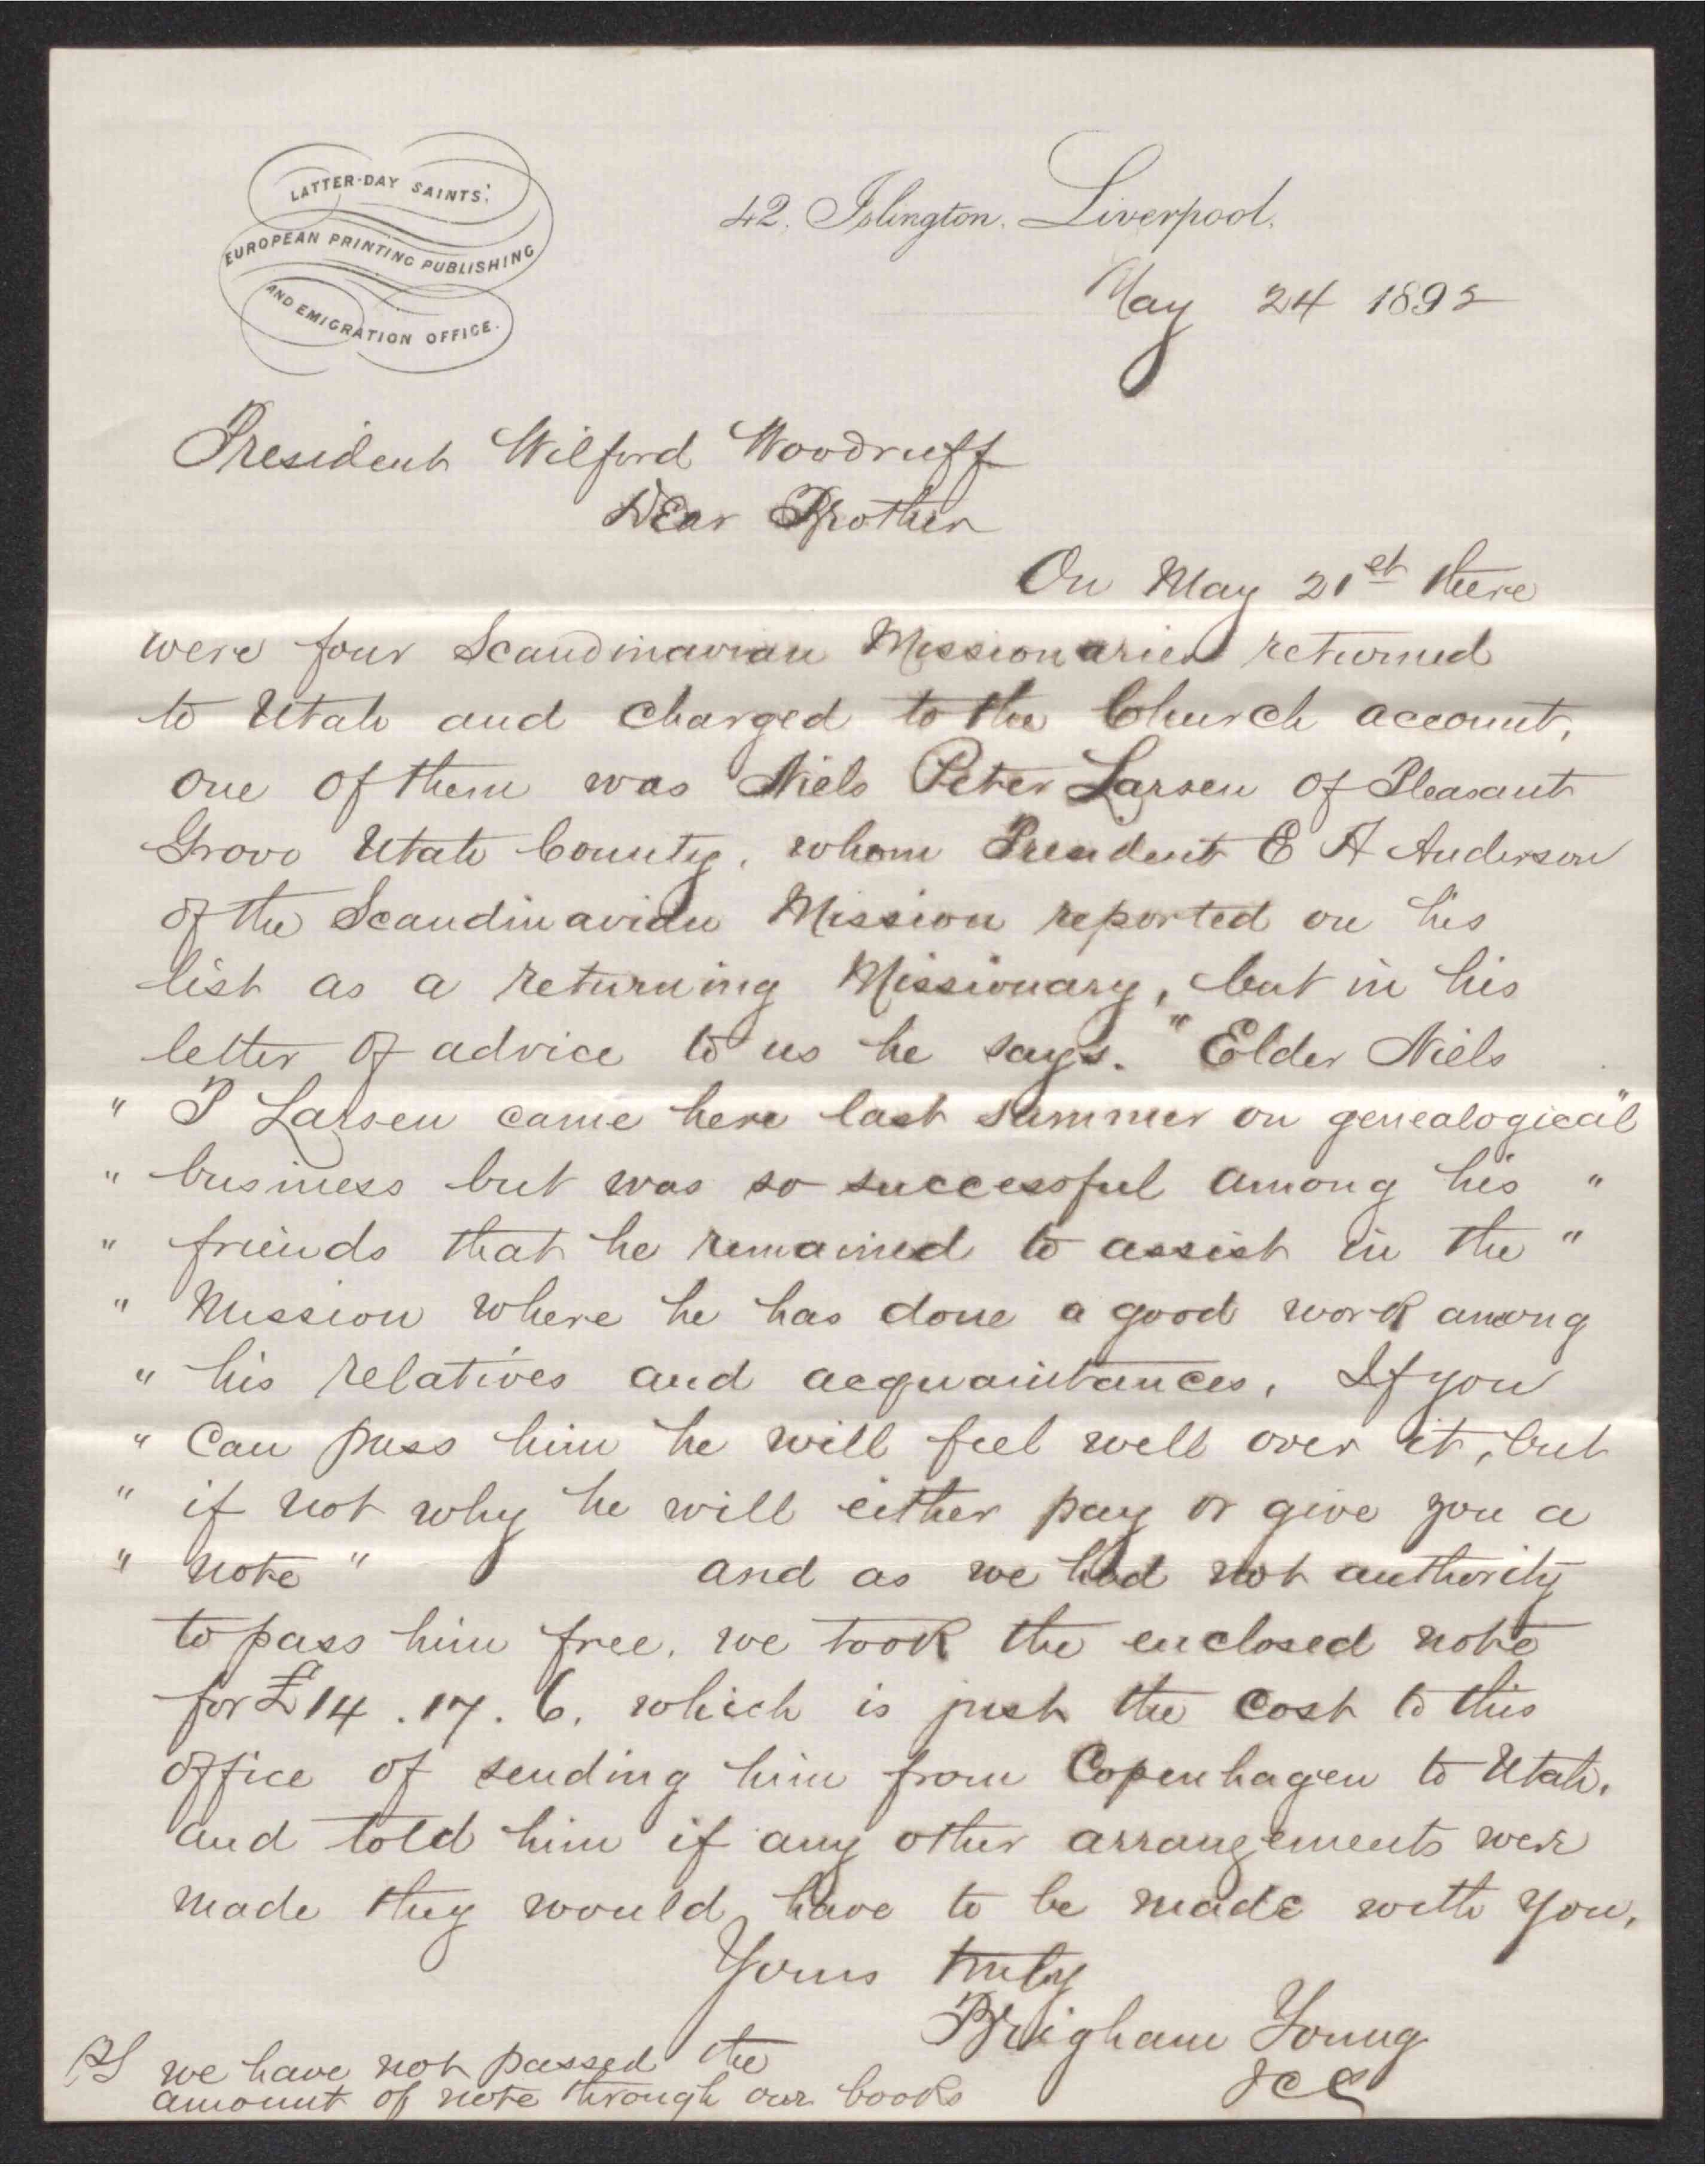 LATTER-DAY SAINTS'
EUROPEAN PRINTING PUBLISHING
AND EMIGRATION OFFICE.
42, Islington, Liverpool.
May 24 1892
President Wilford Woodruff
Dear Brother
On May 21st there
were four Scandinavian Missionaries returned
to Utah and charged to the Church account,
one of them was Niels Peter Larsen of Pleasant
Grove Utah County, whom President E A Anderson
of the Scandinavian Mission reported on his
list as a returning Missionary, but in his
letter of advice to us he says. "Elder Niels
" P Larsen came here last summer on genealogical "
" business but was so successful among his "
" friends that he remained to assist in the "
" Mission where he has done a good work among
" his relatives and acquaintances, If you
" can pass him he will feel well over it, but
" if not why he will either pay or give you a
" note " and as we had not authority
to pass him free, we took the enclosed note
for £14.17.6. which is just the cost to this
office of sending him from Copenhagen to Utah.
and told him if any other arrangements were
made they would have to be made with you,
Yours truly
Brigham Young
JCC
PS we have not passed the
amount of note through our books